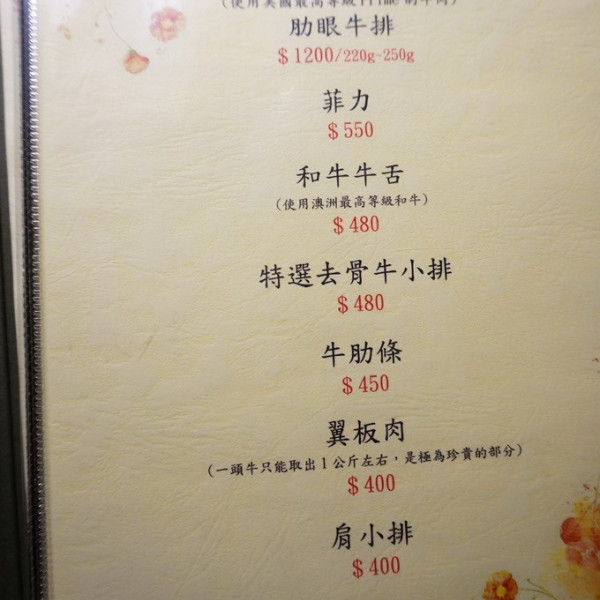 (使用美國最高等級Prime的牛肉)
肋眼牛排
$1200/220g~250g
菲力
$550
和牛牛舌
(使用澳洲最高等級和牛)
$480
特選去骨牛小排
$480
牛肋條
$450
翼板肉
(一頭牛只能取出1公斤左右，是極為珍貴的部分)
$400
肩小排
$400